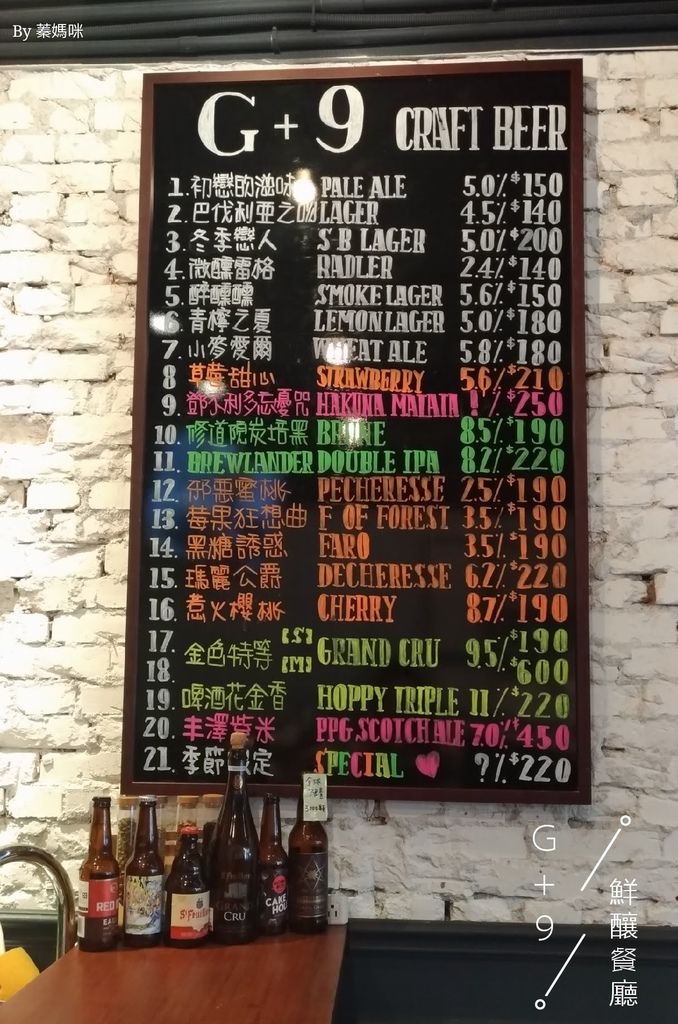 By 蓁媽咪
G+9 CRAFT BEER
1. 初戀的滋味 PALE ALE 5.0% $150
2. 巴伐利亞之吻 LAGER 4.5% $140
3. 冬季戀人 S·B LAGER 5.0% $200
4. 微醺雷格 RADLER 2.4% $140
5. 醉醺醺 SMOKE LAGER 5.6% $150
6. 青檸之夏 LEMON LAGER 5.0% $180
7. 小麥愛爾 WHEAT ALE 5.8% $180
8 草莓甜心 STRAWBERRY 5.6% $210
9. 鄧不利多忘憂咒 HAKUNA MATATA !% $250
10. 修道院炭培黑 BRUNE 8.5% $190
11. BREWLANDER DOUBLE IPA 8.2% $220
12. 邪惡蜜桃 PECHERESSE 2.5% $190
13. 莓果狂想曲 F OF FOREST 3.5% $190
14. 黑糖誘惑 FARO 3.5% $190
15. 瑪麗公爵 DECHERESSE 6.2% $220
16. 惹火櫻桃 CHERRY 8.7% $190
17. 金色特等 [S] GRAND CRU 9.5% $190
18. [M] $600
19. 啤酒花金香 HOPPY TRIPLE 11% $220
20. 丰澤紫米 PPG.SCOTCH ALE 7.0% $450
21. 季節定 SPECIAL ♥ ?% $220
RED
EA
St Feuillien
GRAND
CRU
CAKE
HO
G+9
鮮釀餐廳